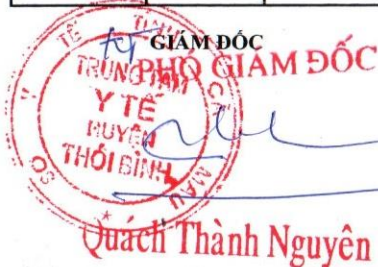 KT GIÁM ĐỐC
PHÓ GIÁM ĐỐC
SỞ Y TẾ TỈNH CÀ MAU
TRUNG TÂM
Y TẾ
HUYỆN
THỚI BÌNH
Quách Thành Nguyên